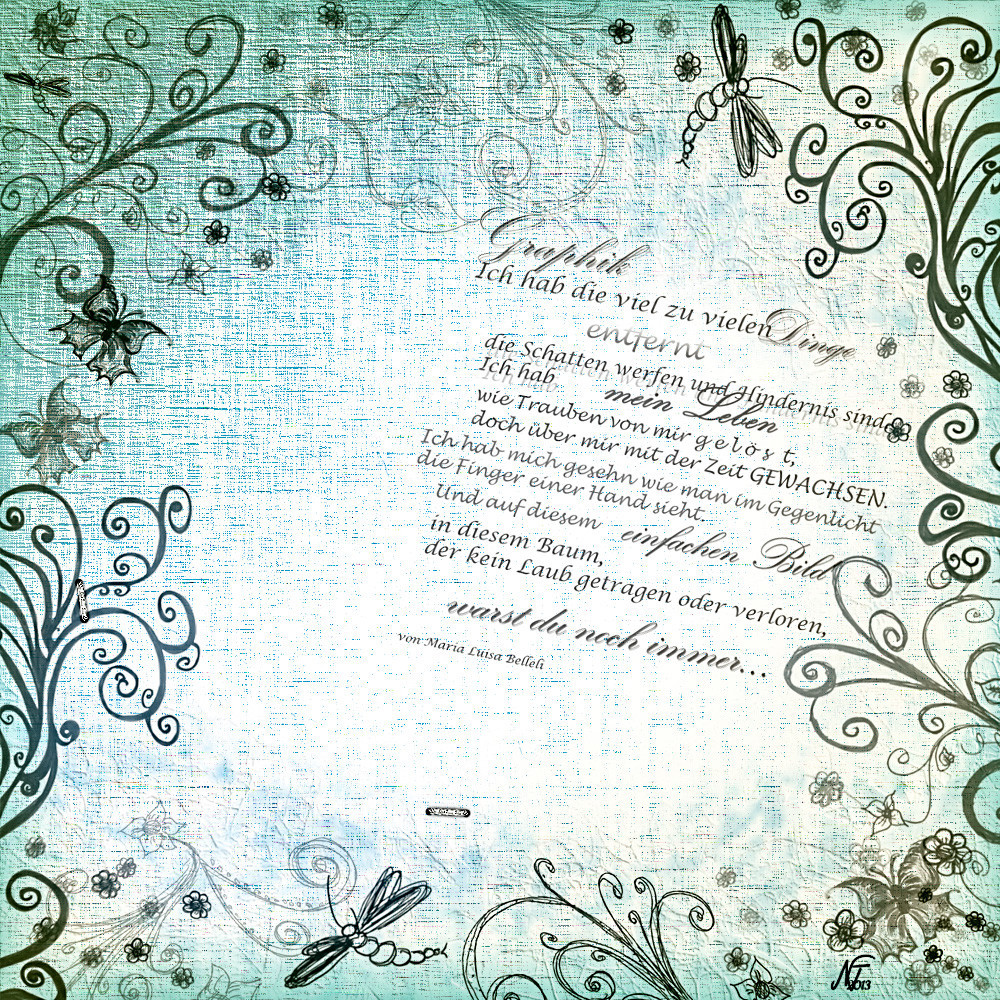 Graphik
Ich hab die viel zu vielen Dinge
entfernt
die Schatten werfen und Hindernis sind.
Ich hab mein Leben
wie Trauben von mir g e l ö s t,
doch über mir mit der Zeit GEWACHSEN.
Ich hab mich gesehn wie man im Gegenlicht
die Finger einer Hand sieht.
Und auf diesem einfachen Bild
in diesem Baum,
der kein Laub getragen oder verloren,
warst du noch immer...
von Maria Luisa Belleli
2013